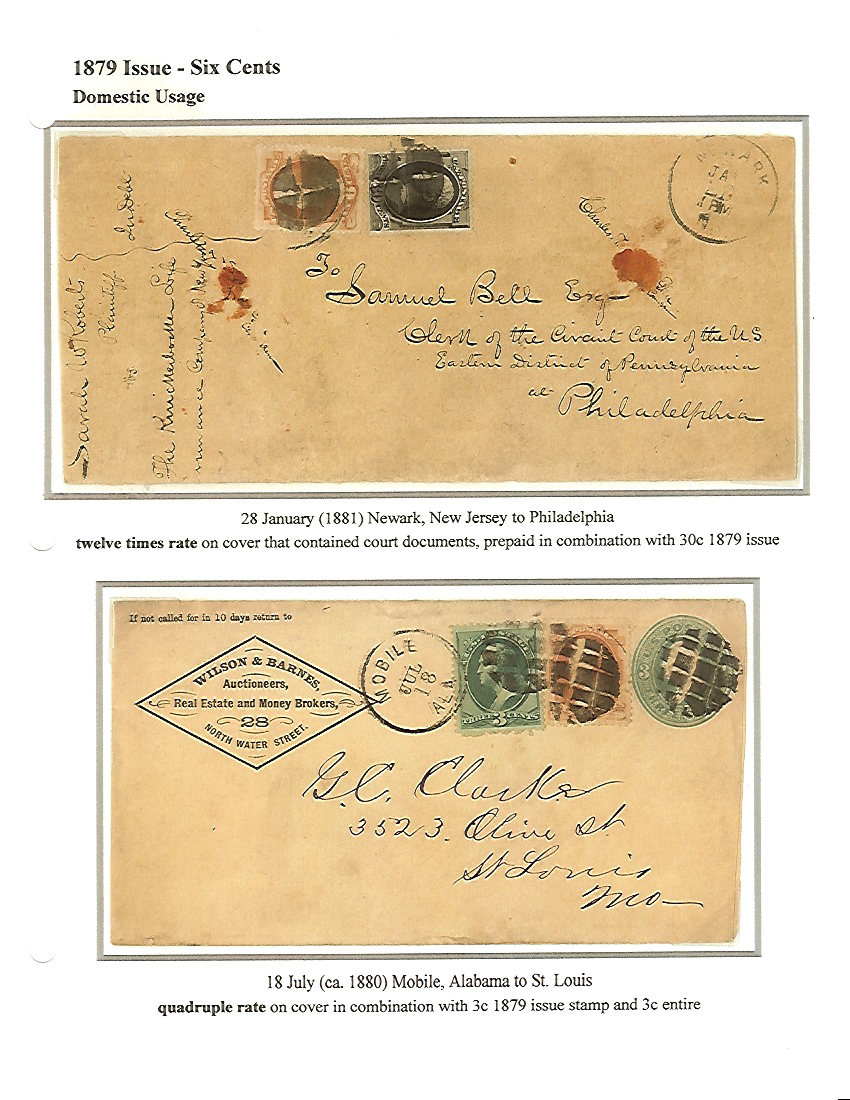 1879 Issue - Six Cents
Domestic Usage
NEWARK
JA
1 PM
Sarah W Roberts
Plaintiff
In Debt
vs.
The Knickerbocker Life
Insurance Company of New York
Charles
To
Samuel Bell Esq
Clerk of the Circuit Court of the U.S
Eastern District of Pennsylvania
at
Philadelphia
28 January (1881) Newark, New Jersey to Philadelphia
twelve times rate on cover that contained court documents, prepaid in combination with 30c 1879 issue
If not called for in 10 days return to
WILSON & BARNES,
Auctioneers,
Real Estate and Money Brokers,
28
NORTH WATER STREET.
MOBILE
JUL
18
ALA.
THREE 3 CENTS
G.C. Clarke
3523. Olive St
St Louis
Mo
18 July (ca. 1880) Mobile, Alabama to St. Louis
quadruple rate on cover in combination with 3c 1879 issue stamp and 3c entire